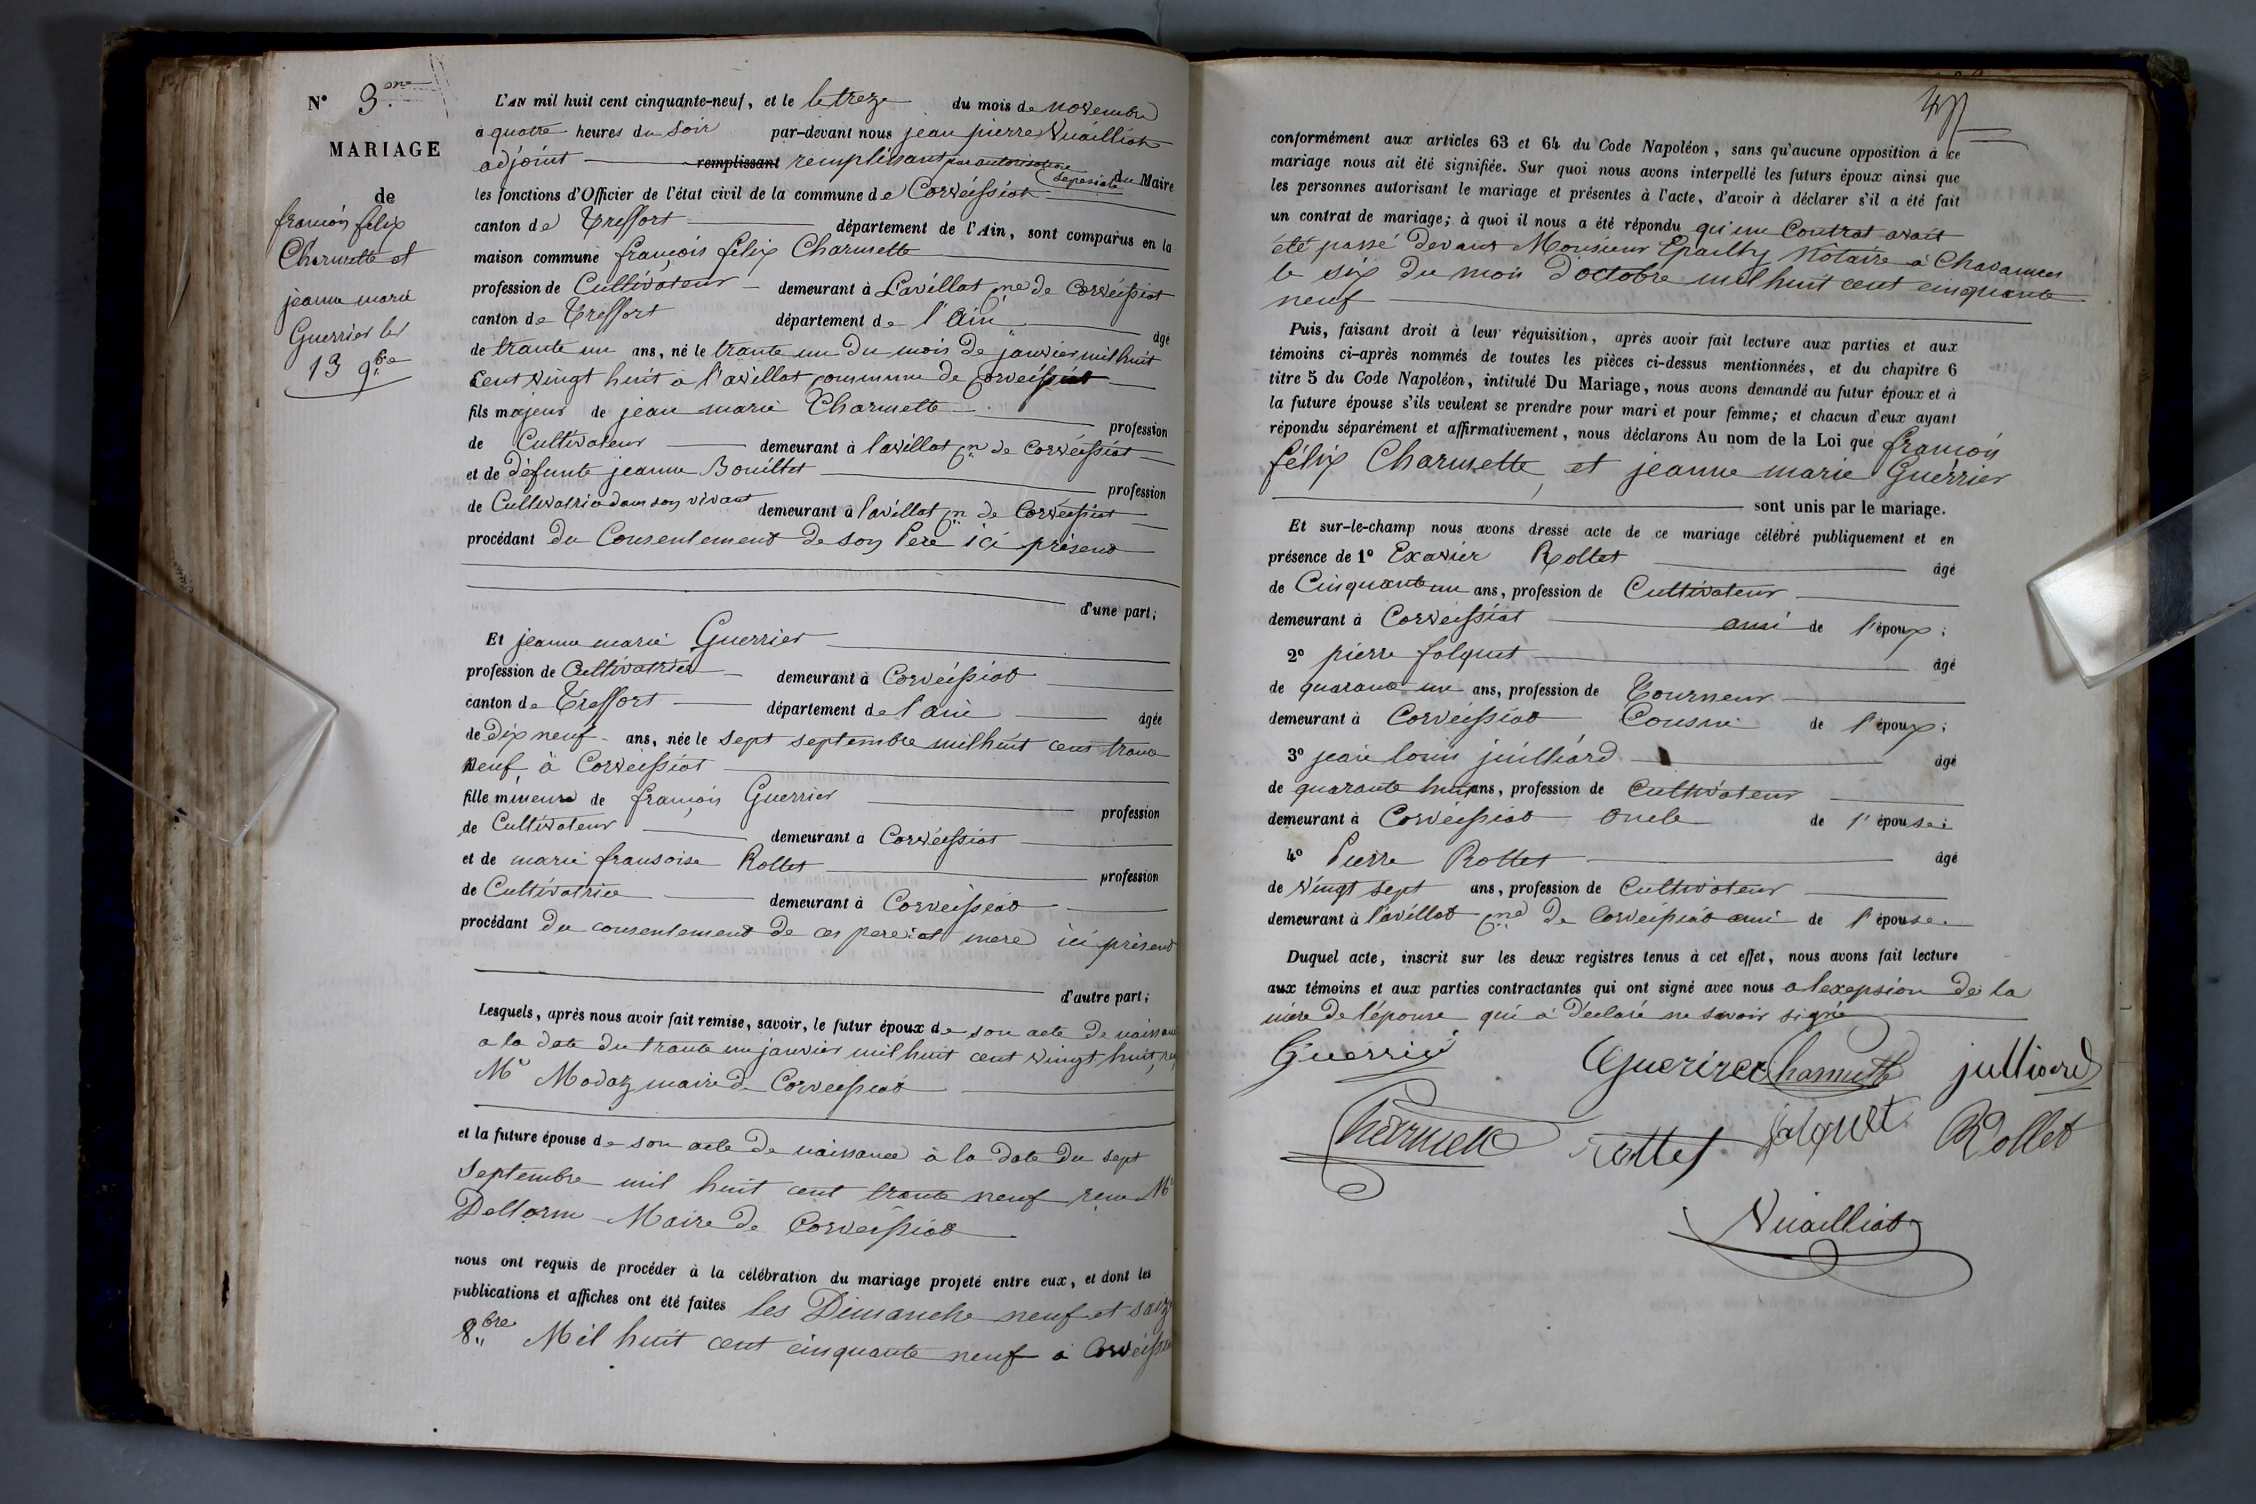 N° 3.
MARIAGE
de
françois felix
Charnette et
jeanne marie
Guerrier le
13 9bre
L'AN mil huit cent cinquante-neuf, et le le treze du mois de novembre
à quatre heures du soir par-devant nous jean pierre Vuailliat
adjoint remplissant remplissant par autorisation speciale du Maire
les fonctions d'Officier de l'état civil de la commune de Corveissiat
canton de Treffort département de l'Ain, sont comparus en la
maison commune françois félix Charnette
profession de Cultivateur demeurant à L'avillat cne de Corveissiat
canton de Treffort département de l'Ain âgé
de trante un ans, né le trante un du mois de janvier mil huit
cent vingt huit a l'avillat commune de Corveissiat
fils majeur de jean marie Charnette profession
de Cultivateur demeurant à lavillat cne de Corveissiat
et de défunte jeanne Bouillet profession
de Cultivatrice dans son vivant demeurant à lavillat cne de Corveissiat
procédant du Consentement de son Pere ici présent
d'une part;
Et jeanne marie Guerrier
profession de Cultivatrice demeurant à Corveissiat
canton de Treffort département de l'ain âgée
de Dix neuf ans, née le sept septembre mil huit cent trante
neuf à Corveissiat
fille mineure de françois Guerrier profession
de Cultivateur demeurant à Corveissiat
et de marie fransoise Rollet profession
de Cultivatrice demeurant à Corveissiat
procédant du consentement de ces pere et mere ici présent
d'autre part;
Lesquels, après nous avoir fait remise, savoir, le futur époux de son acte de naissance
a la date du trante un janvier mil huit cent vingt huit,
Mr Modaz maire de Corveissiat
et la future épouse de son acte de naissance à la date du sept
septembre mil huit cent trante neuf reçu Mr
Dellorme Maire de Corveissiat
nous ont requis de procéder à la célébration du mariage projeté entre eux, et dont les
publications et affiches ont été faites les Dimanche neuf et saize
8bre Mil huit cent cinquante neuf à Corveissiat
conformément aux articles 63 et 64 du Code Napoléon, sans qu'aucune opposition à ce
mariage nous ait été signifiée. Sur quoi nous avons interpellé les futurs époux ainsi que
les personnes autorisant le mariage et présentes à l'acte, d'avoir à déclarer s'il a été fait
un contrat de mariage; à quoi il nous a été répondu qu'un Contrat avait
été passé devant Monsieur Epailly Notaire à Chavannes
le six du mois d'octobre mil huit cent cinquante
neuf
Puis, faisant droit à leur réquisition, après avoir fait lecture aux parties et aux
témoins ci-après nommés de toutes les pièces ci-dessus mentionnées, et du chapitre 6
titre 5 du Code Napoléon, intitulé Du Mariage, nous avons demandé au futur époux et à
la future épouse s'ils veulent se prendre pour mari et pour femme; et chacun d'eux ayant
répondu séparément et affirmativement, nous déclarons Au nom de la Loi que françois
félix Charnette et jeanne marie Guérrier
sont unis par le mariage.
Et sur-le-champ nous avons dressé acte de ce mariage célébré publiquement et en
présence de 1° Exavier Rollet âgé
de Cinquante un ans, profession de Cultivateur
demeurant à Corveissiat ami de l'époux;
2° pierre folquet âgé
de quarante un ans, profession de Tourneur
demeurant à Corveissiat Cousin de l'époux;
3° jean louis juilliard âgé
de quarante huit ans, profession de Cultivateur
demeurant à Corveissiat oncle de l'épouse;
4° Pierre Rollet âgé
de vingt sept ans, profession de Cultivateur
demeurant à l'avillat cne de Corveissiat ami de l'épouse.
Duquel acte, inscrit sur les deux registres tenus à cet effet, nous avons fait lecture
aux témoins et aux parties contractantes qui ont signé avec nous a lexepsion de la
mère de l'épouse qui a déclaré ne savoir signé
Guerrie Guerirer Charnette julliard
Charnette Rollet falquet Rollet
Vuailliat